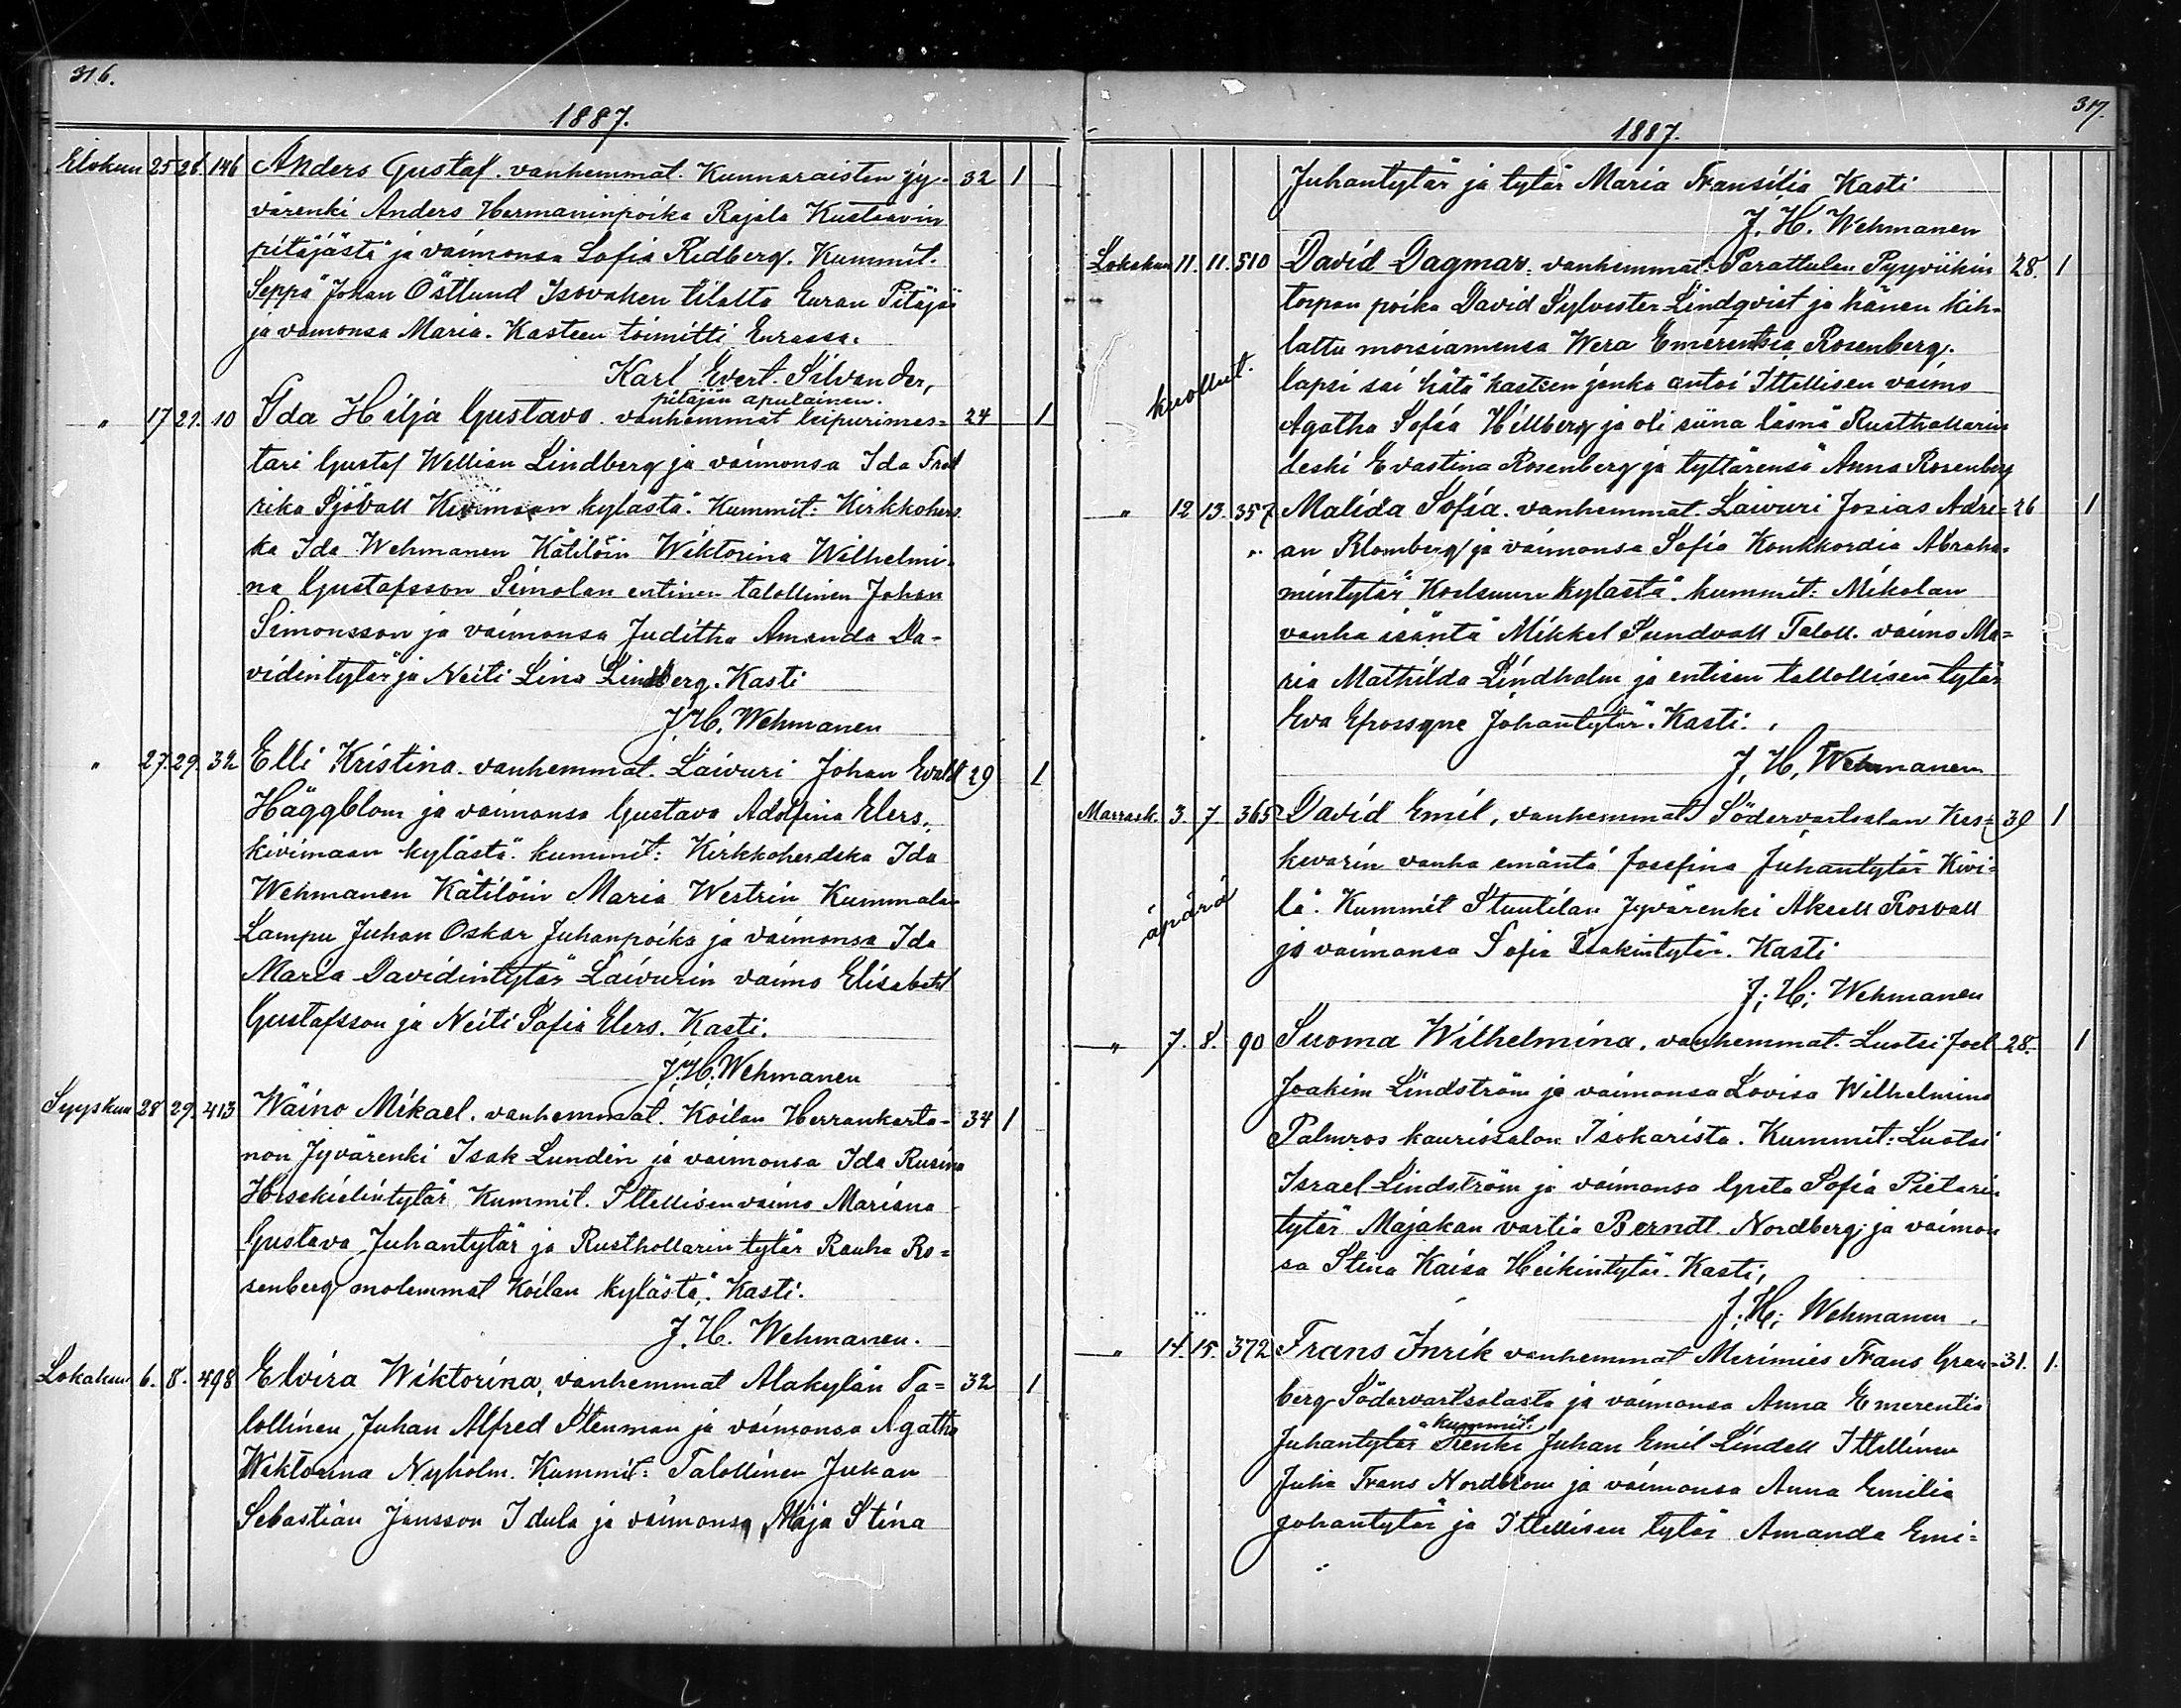 316.
1887.
Elokuu 25 26 146 Anders Gustaf. vanhemmat. Kunnaraisten jy- 32 1
värenki Anders Hermaninpoika Rajala Kustaavin
pitäjästä ja vaimonsa Sofia Redberg. Kummit.
Seppä Johan Östlund Isovahen tilalta Euran Pitäjä
ja vaimonsa Maria. Kasteen toimitti Eurassa.
Karl Evert Silvander,
pitäjän apulainen.
" 17 21. 10 Ida Hilja Gustava. vanhemmat leipurimes= 24 1
tari Gustaf Wellian Lindberg ja vaimonsa Ida Fred
rika Sjövall Kivimaan kylästä. Kummit: Kirkkoher
ka Ida Wehmanen Kätilöin Wiktorina Wilhelmi-
na Gustafsson Simolan entinen talollinen Johan
Simonsson ja vaimonsa Juditha Amanda Da-
vidintytär ja Neiti Lina Lindberg. Kasti
J. H. Wehmanen
" 27. 29. 32 Elli Kristina. vanhemmat. Laivuri Johan Evald 29 1
Häggblom ja vaimonsa Gustava Adolfina Elers.
kivimaan kylästä. kummit: Kirkkoherdska Ida
Wehmanen Kätilöin Maria Westrin Kummalan
Lampu Juhan Oskar Juhanpoika ja vaimonsa Ida
Maria Davidintytär Laivurin vaimo Elisabeth
Gustafsson ja Neiti Sofia Elers. Kasti.
J. H. Wehmanen
Syyskuu 28 29. 413 Wäino Mikael. vanhemmat. Koilan Herrankarta- 34 1
non Jyvärenki Isak Lundén ja vaimonsa Ida Rusina
Hesekielintytär Kummit. Ittellisen vaimo Mariana
Gustava Juhantytär ja Rusthollarin tytär Rauha Ro=
senberg molemmat Koilan kylästä. Kasti.
J. H. Wehmanen.
Lokakuu 6. 8. 498 Elvira Wiktorina, vanhemmat Alakylän Ta= 32 1
lollinen Juhan Alfred Stenman ja vaimonsa Agatha
Wiktorina Nyholm. Kummit: Talollinen Juhan
Sebastian Jansson Idula ja vaimonsa Maja Stina
317.
1887.
Juhantytär ja tytär Maria Fransilia Kasti
J. H. Wehmanen
Lokakuu 11. 11. 510 David Dagmar. vanhemmat. Parattulan Pyyviikin 28. 1
torpan poika David Sylvester Lindqvist ja hänen kih-
lattu morsiamensa Wera Emerentsia Rosenberg.
kuollut.
lapsi sai hätä kasteen jonka antoi Ittellisen vaimo
Agatha Sofia Hillberg ja oli siina läsnä Rusthollarin
leski Evastina Rosenberg ja tyttärensä Anna Rosenberg
" 12 13. 357 Malida Sofia. vanhemmat. Laivuri Josias Adri= 26 1
an Blomberg ja vaimonsa Sofia Konkkordia Abraha-
mintytär kylästä. kummit: Mikolan
vanha isäntä Mikkel Sundvall Taloll. vaimo Ma=
ria Mathilda Lindholm ja entisen tallollisen tytär
Eva Johantytär. Kasti.
J. H. Wehmanen
Marrask. 3. 7. 365 David Emil, vanhemmat Södervartsalan Kes= 39 1
kevarin vanha emäntä Josefina Juhantytär Kivi-
äpärä
lä. Kummit Stuutilan Jyvärenki Aksell Rosvall
ja vaimonsa Sofia Isakintytär. Kasti
J. H. Wehmanen
" 7. 8. 90 Suoma Wilhelmina. vanhemmat. Luotsi Joel 28. 1
Joakim Lindström ja vaimonsa Lovisa Wilhelmina
Palmros kaurissalon Isokarista. Kummit: Luotsi
Israel Lindström ja vaimonsa Greta Sofia Pietarin
tytär Majakan vartia Berndt. Nordberg ja vaimon
sa Stina Kaisa Heikintytär. Kasti,
J. H. Wehmanen
" 14. 15. 372 Frans Inrik vanhemmat Merimies Frans Gran- 31. 1.
berg Södervartsalasta ja vaimonsa Anna Emerentia
kummit:
Juhantytär Renki Juhan Emil Lindell Ittellinen
Juha Frans Nordblom ja vaimonsa Anna Emilia
Johantytär ja Ittellisen tytär Amanda Emi=